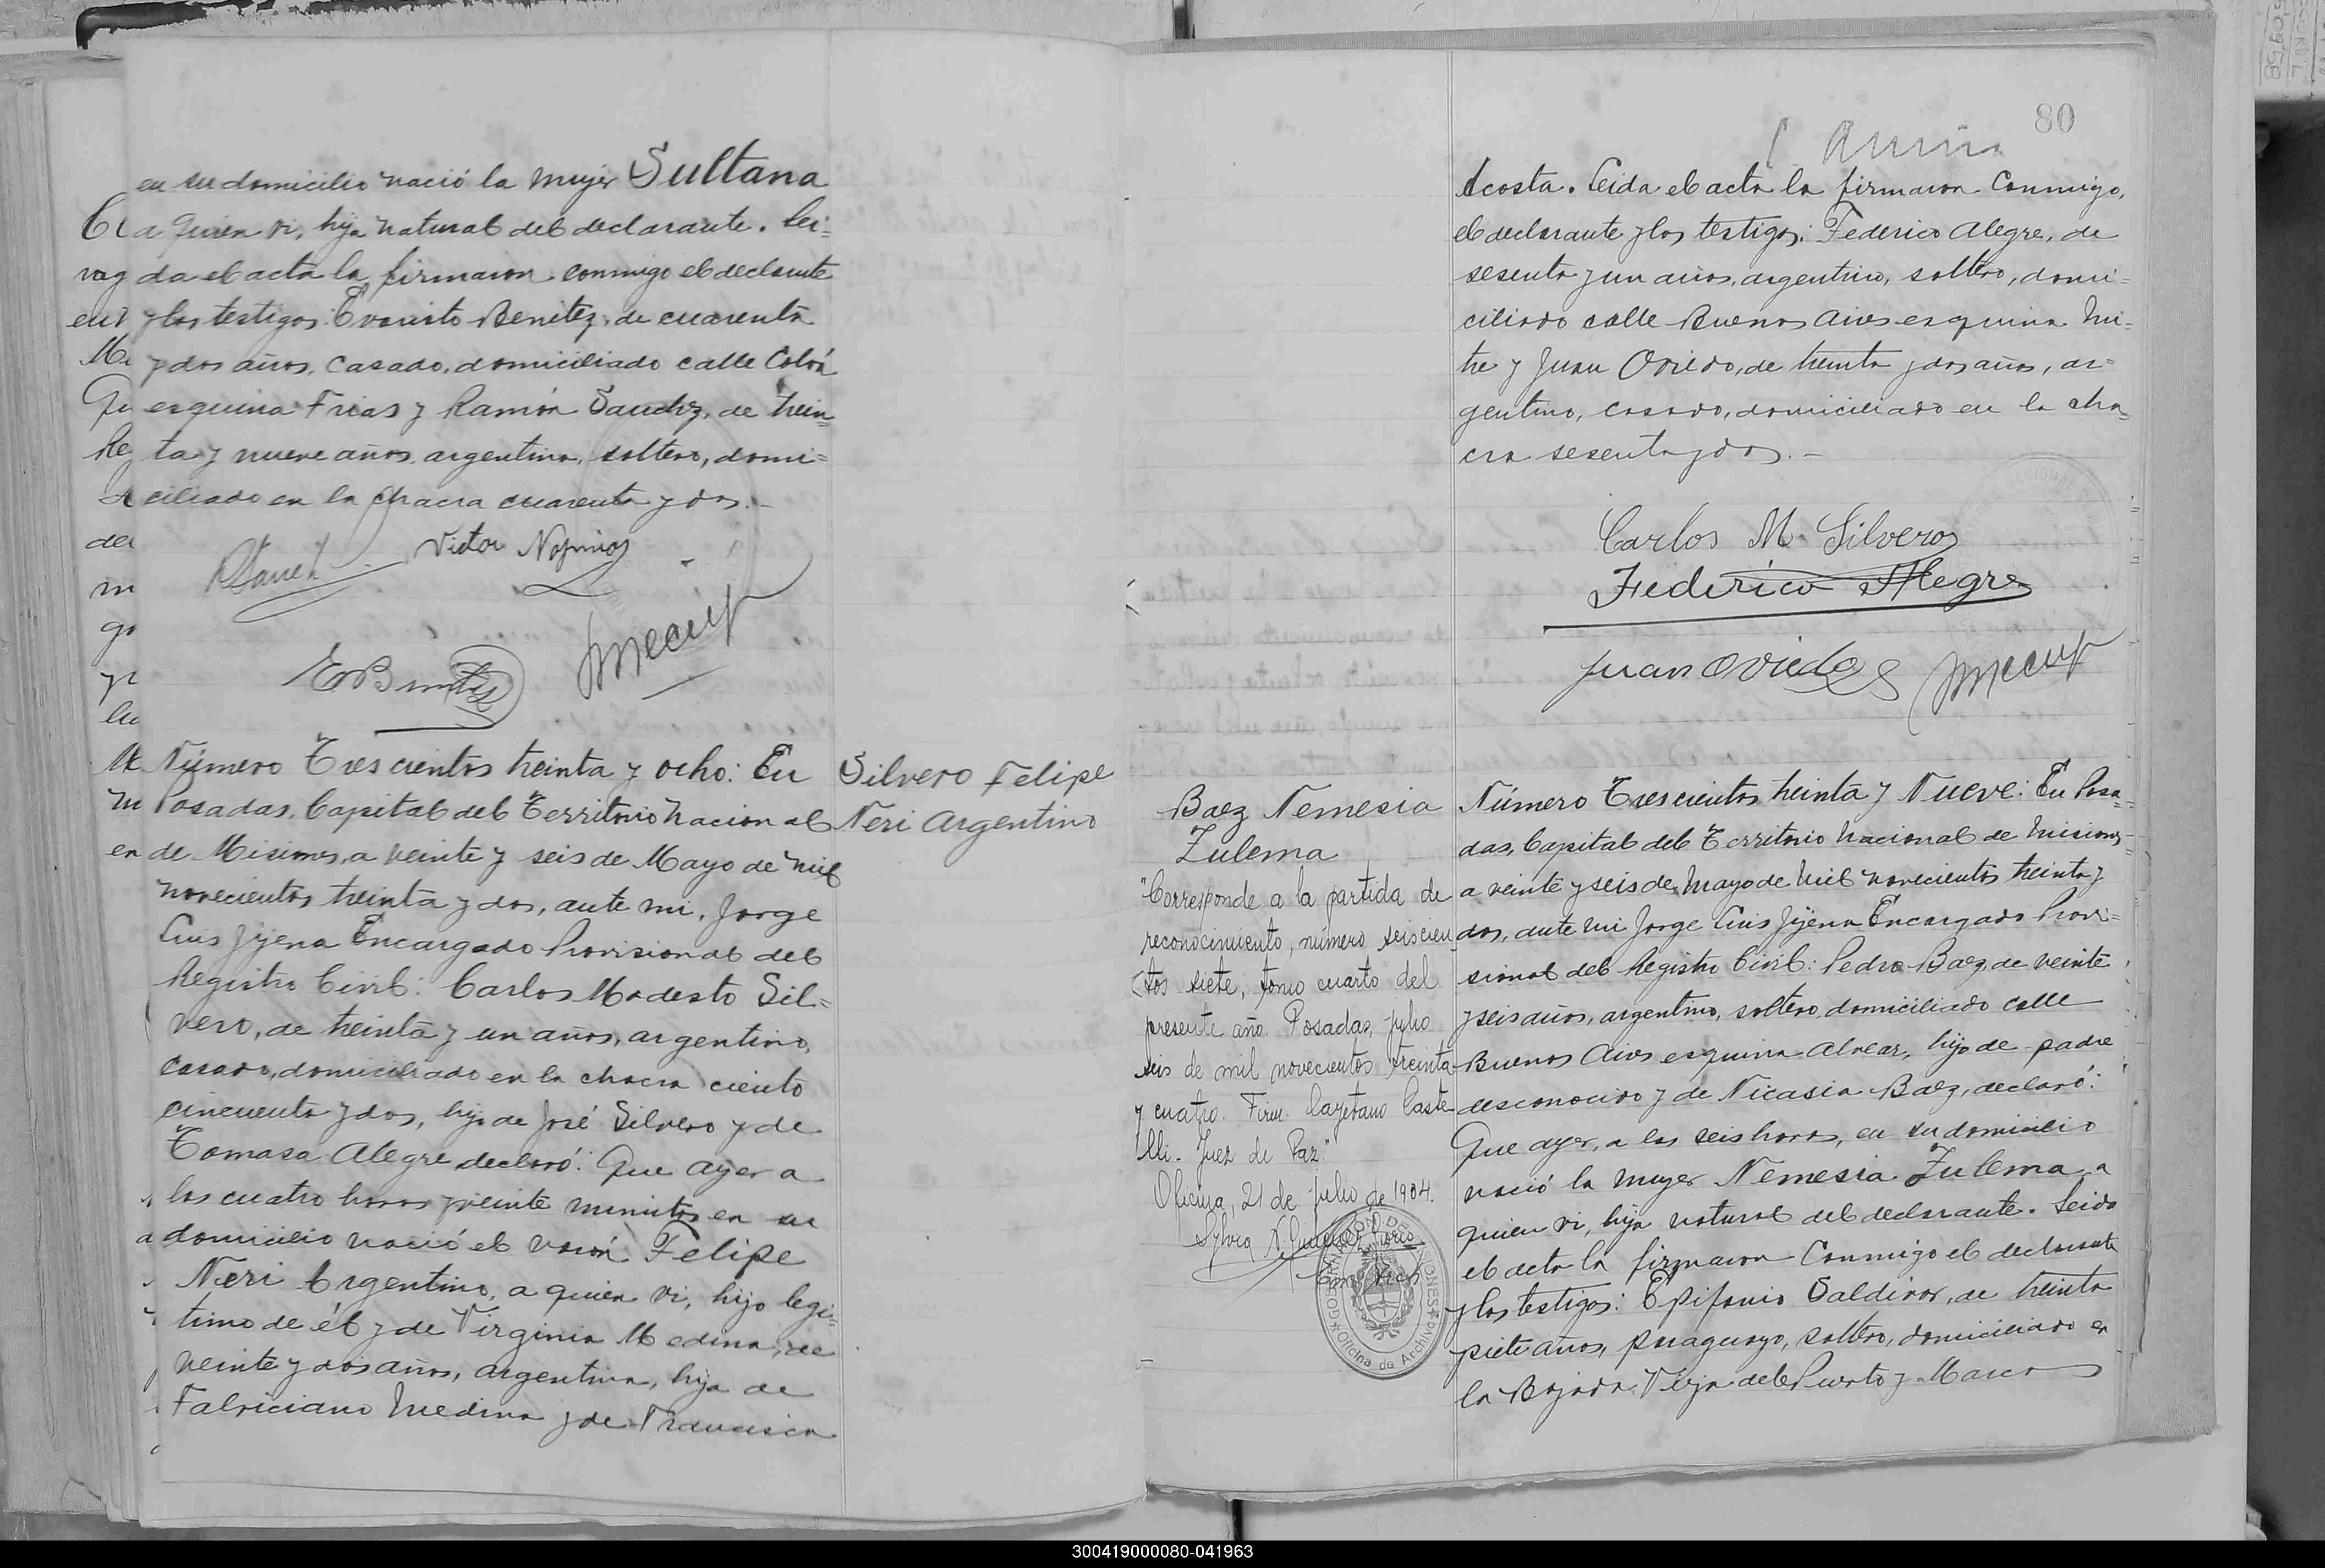 en su domicilio nació la mujer Sultana
a quien vi, hija natural del declarante. Leí=
da el acta la firmaron conmigo el declarante
y los testigos: Evaristo Benitez, de cuarenta
y dos años, casado, domiciliado calle Colón
esquina Frias y Ramón Sanchz, de trein=
ta y nueve años, argentino, soltero, domi=
ciliado en la chacra cuarenta y dos.-
Victor
Número Trescientos treinta y ocho: En
Posadas, Capital del Territorio Nacional
de Misiones, a veinte y seis de Mayo de mil
novecientos treinta y dos, ante mi, Jorge
Luis Jijena Encargado Provisional del
Registro Civil: Carlos Modesto Sil=
vero, de treinta y un años, argentino,
casado, domiciliado en la chacra ciento
cincuenta y dos, hijo de José Silvero y de
Tomasa Alegre declaró: Que ayer a
las cuatro horas y veinte minutos en su
domicilio nació el varón Felipe
Neri Argentino, a quien vi, hijo legi=
timo de él y de Virginia Medina, de
veinte y dos años, argentina, hija de
Fabriciano Medina y de Francisca
Silvero Felipe
Neri Argentino
80
Acosta. Leida el acta la firmaron conmigo,
el declarante y los testigos: Federico Alegre, de
sesenta y un años, argentino, soltero, domi=
ciliado calle Buenos Aires esquina Mi=
tre y Juan Oviedo, de treinta y dos años, ar=
gentino, casado, domiciliado en la cha=
cra sesenta y dos.-
Carlos M. Silvero
Federico Alegre
Juan Oviedo
Baez Nemesia
Zulema
"Corresponde a la partida de
reconocimiento, número seiscien
tos siete, tomo cuarto del
presente año. Posadas, julio
seis de mil novecientos treinta
y cuatro. Firm. Cayetano Caste
lli. Juez de Paz."
Oficina, 21 de julio de 1934.
GOBERNACION DE MISIONES
Oficina de Archivo
Número Trescientos treinta y Nueve: En Posa=
das, Capital del Territorio Nacional de Misiones,
a veinte y seis de Mayo de mil novecientos treinta y
dos, ante mi Jorge Luis Jijena Encargado Provi=
sional del Registro Civil: Pedro Baez, de veinte
y seis años, argentino, soltero, domiciliado calle
Buenos Aires esquina Alvear, hijo de padre
desconocido y de Nicasia Baez, declaró:
Que ayer, a las seis horas, en su domicilio
nació la mujer Nemesia Zulema a
quien vi, hija natural del declarante. Leida
el acta la firmaron conmigo el declarante
y los testigos: Epifanio Saldivar, de treinta
y siete años, paraguayo, soltero, domiciliado en
la Bajada Vieja del Puerto y Marcos
300419000080-041963